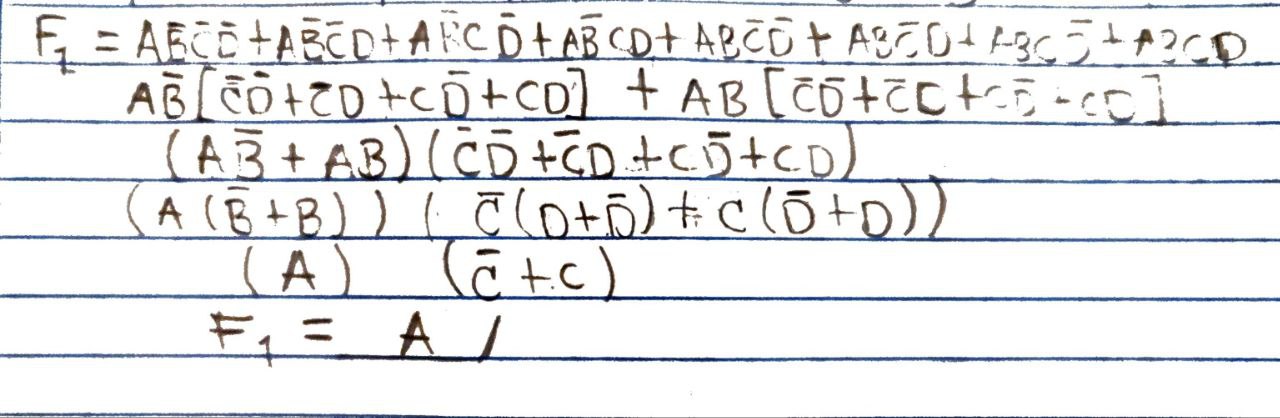 F₁ = AB̄C̄D̄+AB̄C̄D+AB̄CD̄+AB̄CD+ABC̄D̄+ABC̄D+ABCD̄+ABCD
AB̄[C̄D̄+C̄D+CD̄+CD] + AB[C̄D̄+C̄D+CD̄+CD]
(AB̄+AB)(C̄D̄+C̄D+CD̄+CD)
(A(B̄+B))(C̄(D+D̄)+C(D̄+D))
(A) (C̄+C)
F₁ = A /